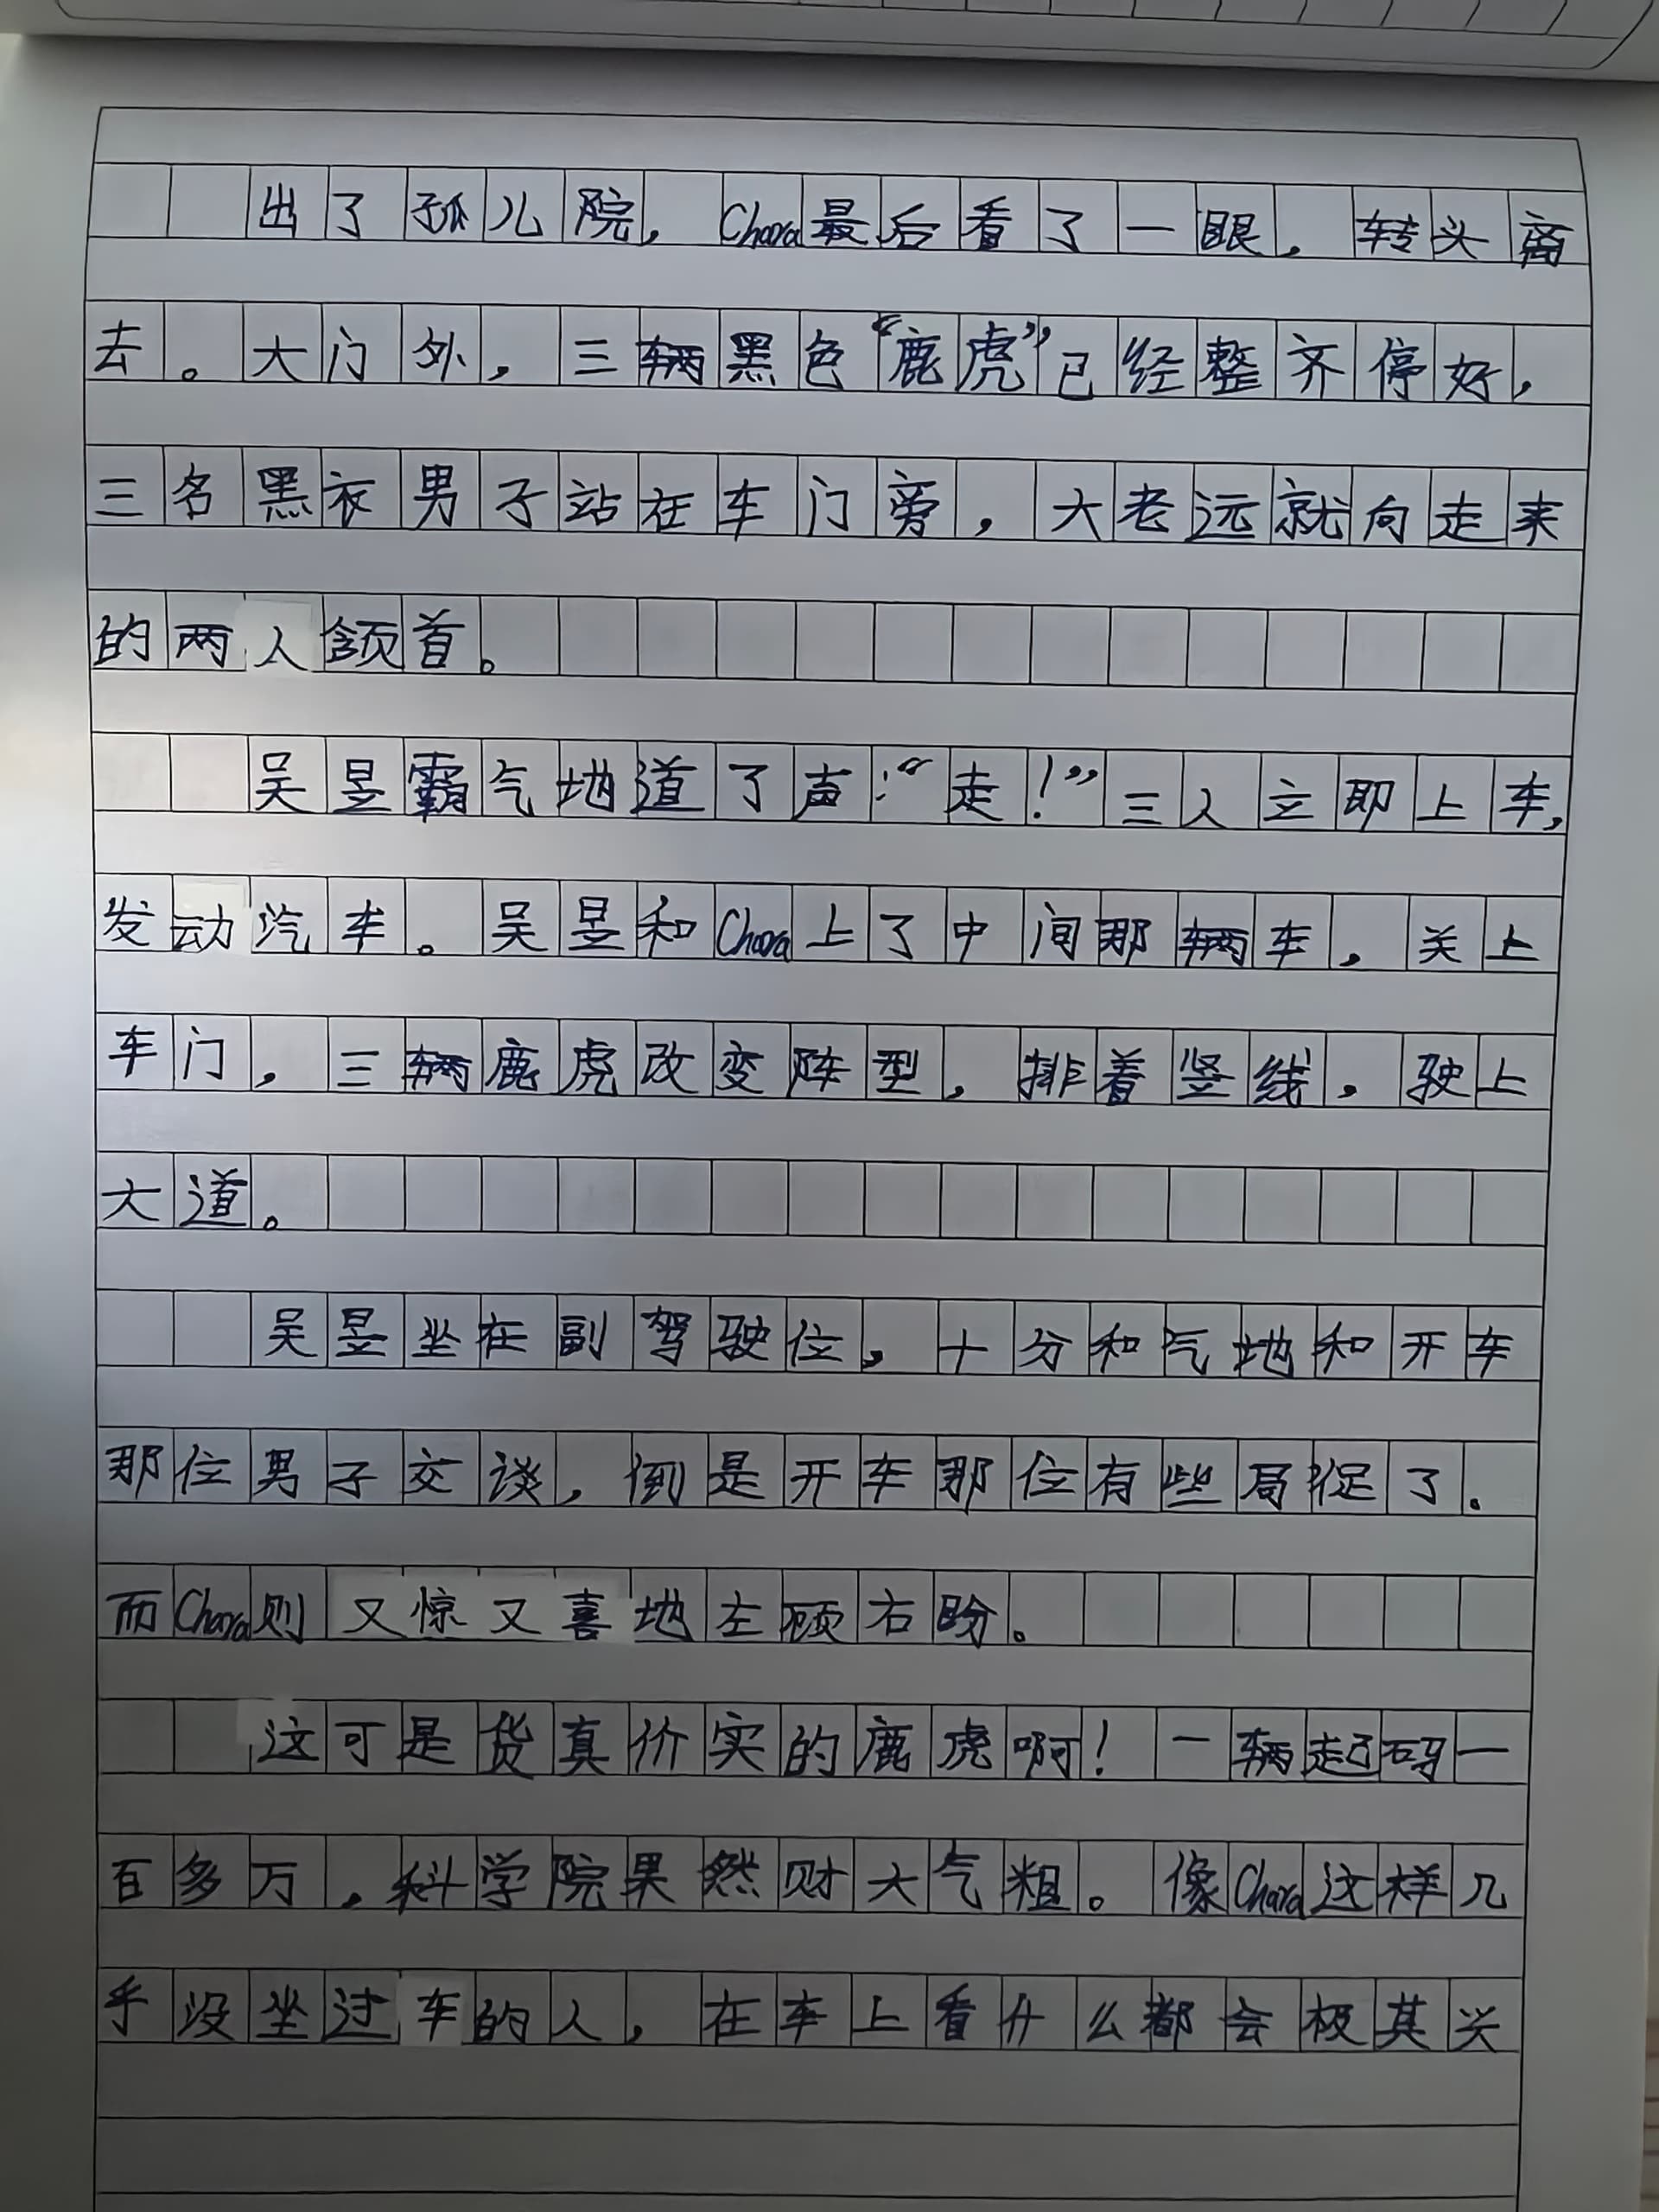 出了孤儿院，Chara最后看了一眼，转头离
去。大门外，三辆黑色“鹿虎”已经整齐停好，
三名黑衣男子站在车门旁，大老远就向走来
的两人颔首。
吴昱霸气地道了声：“走！”三人立即上车，
发动汽车。吴昱和Chara上了中间那辆车，关上
车门，三辆鹿虎改变阵型，排着竖线，驶上
大道。
吴昱坐在副驾驶位，十分和气地和开车
那位男子交谈，倒是开车那位有些局促了。
而Chara则又惊又喜地左顾右盼。
这可是货真价实的鹿虎啊！一辆起码一
百多万，科学院果然财大气粗。像Chara这样几
乎没坐过车的人，在车上看什么都会极其兴